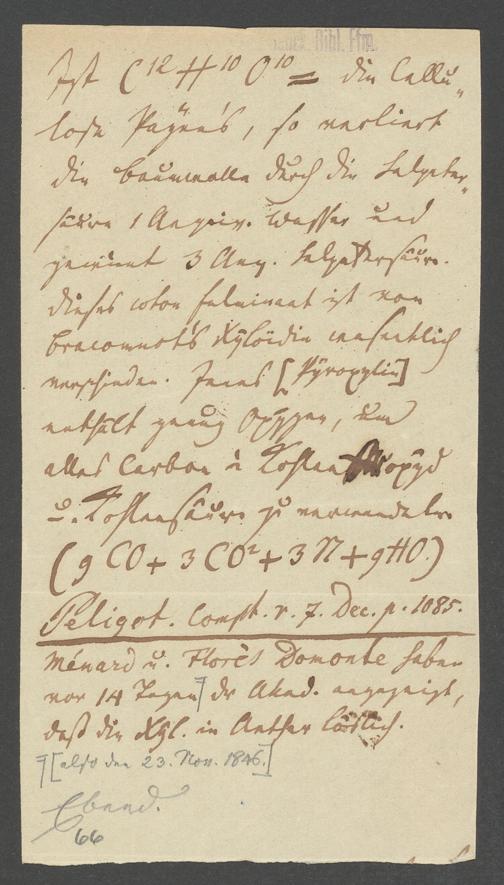 Bibl. Ffm.
Ist C¹² H¹⁰ O¹⁰ = die Cellu„
lose Payen's, so verliert
die Baumwolle durch die Salpeter„
säure 1 Aequiv. Wasser und
gewinnt 3 Aeq. Salpetersäure.
Dieses coton fulminant ist von
Braconnot's Xyloïdin wesentlich
verschieden. Jenes [Pyroxylin]
enthält genug Oxygen, um
alles Carbon in Kohlenoxyd
u. Kohlensäure zu verwandeln
(9 CO + 3 CO² + 3 N + 9 HO.)
Peligot. Compt. r. 7. Dec. p. 1085.
Ménard u. Florès Domonte haben
vor 14 Tagen der Akad. angezeigt,
daß die Xyl. in Aether löslich.
[also den 23. Nov. 1846.]
Ebend.
66